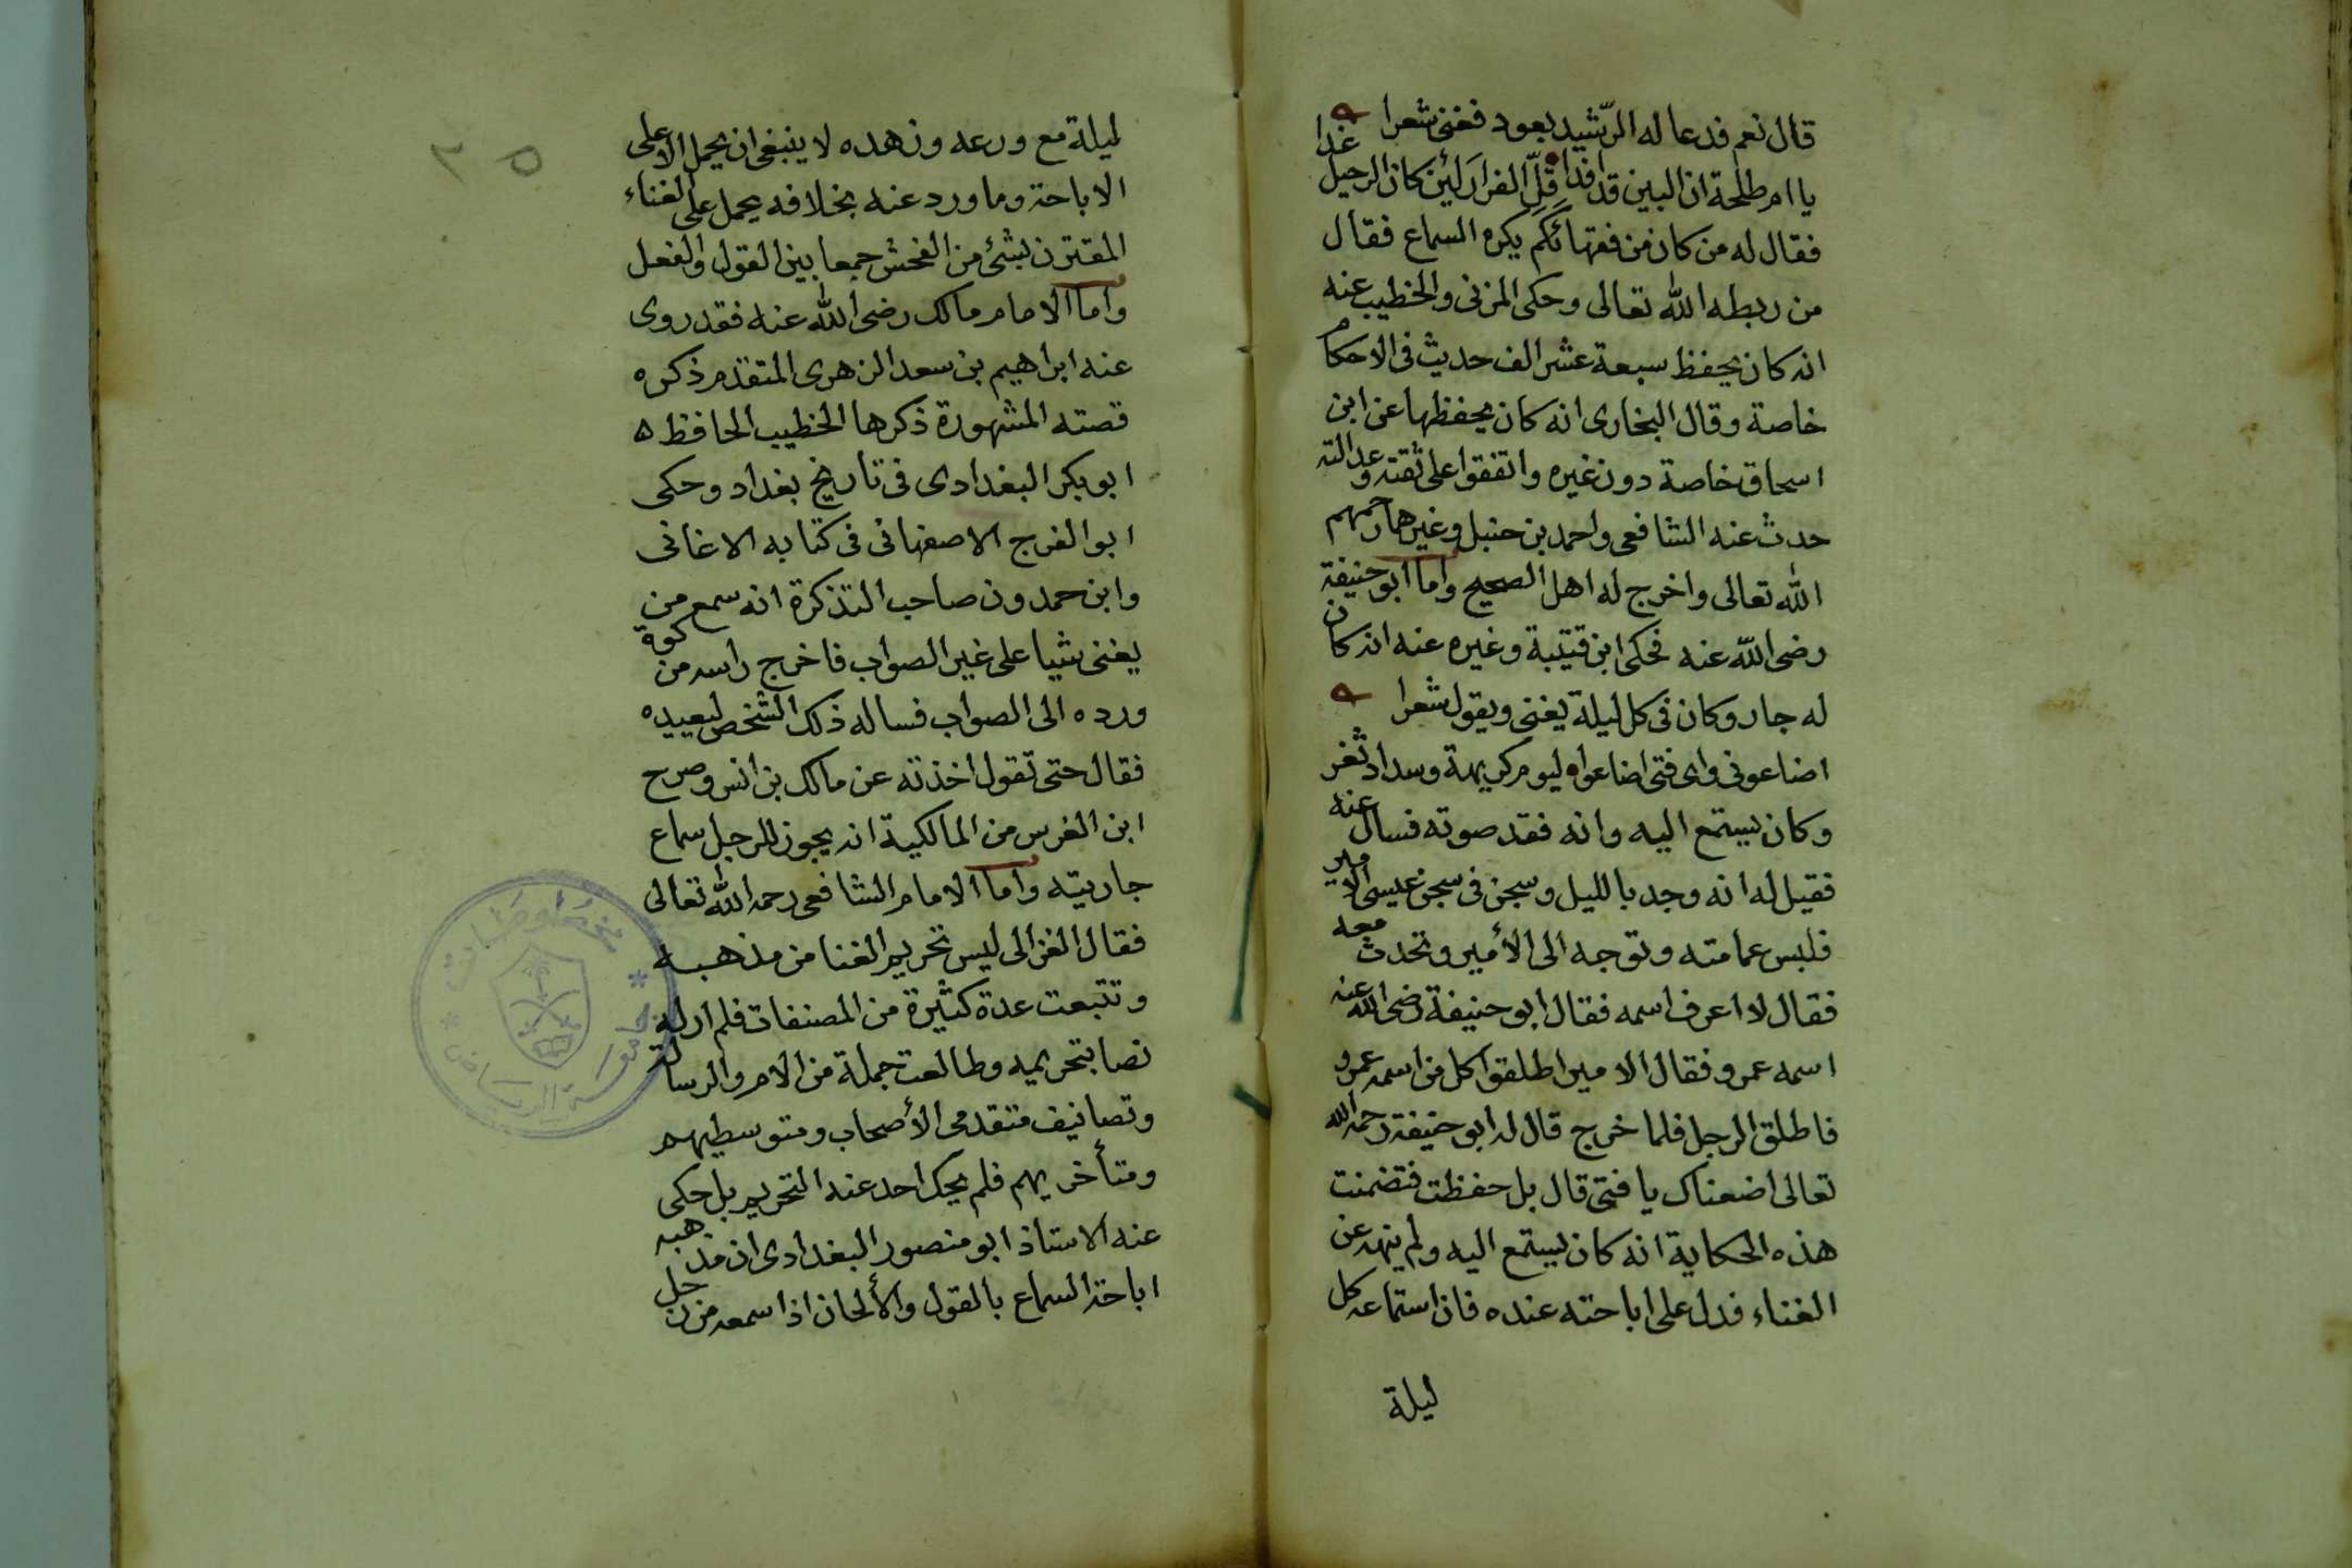 قال نعم فدعا له الرّشيد بعود فغنى شعرا
يا ام طلحة ان البين قد افدا قلّ الفرار لئن كان الرحيل غدا
فقال له من كان من فقهائكم يكره السماع فقال
من ربطه الله تعالى وحكى المزنى والخطيب عنه
انه كان يحفظ سبعة عشر الف حديث فى الاحكام
خاصة وقال البخارى انه كان يحفظها عن ابن
اسحاق خاصة دون غيره واتفقوا على ثقته وعدالته
حدث عنه الشافعى واحمد بن حنبل وغيرهما رحمهم
الله تعالى واخرج له اهل الصحيح واما ابو حنيفة
رضى الله عنه فحكى ابن قتيبة وغيره عنه انه كان
له جار وكان فى كل ليلة يغنى ويقول شعرا
اضاعونى واى فتى اضاعوا ليوم كريهة وسداد ثغر
وكان يستمع اليه وانه فقد صوته فسال عنه
فقيل له انه وجد بالليل وسجن فى سجن عيسى الامير
فلبس عمامته وتوجه الى الأمير وتحدث معه
فقال لا اعرف اسمه فقال ابو حنيفة رضى الله عنه
اسمه عمرو فقال الامير اطلقوا كل من اسمه عمرو
فاطلق الرجل فلما خرج قال له ابو حنيفة رحمه الله
تعالى اضعناك يا فتى قال بل حفظت فتضمنت
هذه الحكاية انه كان يستمع اليه ولم ينهه عن
الغناء فدل على اباحته عنده فان استماعه كل
ليلة
٢٥
ليلة مع ورعه وزهده لا ينبغى ان يحمل الا على
الاباحة وما ورد عنه بخلافه يحمل على الغناء
المقترن بشئ من الفحش جمعا بين القول والفعل
واما الامام مالك رضى الله عنه فقد روى
عنه ابراهيم بن سعد الزهرى المتقدم ذكره
قصته المشهورة ذكرها الخطيب الحافظ ه
ابو بكر البغدادى فى تاريخ بغداد وحكى
ابو الفرج الاصفهانى فى كتابه الاغانى
وابن حمدون صاحب التذكرة انه سمع من
يغنى شيا على غير الصواب فاخرج راسه من كوة
ورده الى الصواب فساله ذلك الشخص ليعيده
فقال حتى تقول اخذته عن مالك بن انس وصرح
ابن الغرس من المالكية انه يجوز للرجل سماع
جاريته واما الامام الشافعى رحمه الله تعالى
فقال الغزالى ليس تحريم الغنا من مذهبه
وتتبعت عدة كثيرة من المصنفات فلم ار له
نصا بتحريمه وطالعت جملة من الام والرسالة
وتصانيف متقدمى الأصحاب ومتوسطيهم
ومتأخريهم فلم يحك احد عنه التحريم بل حكى
عنه الاستاذ ابو منصور البغدادى ان مذهبه
اباحة السماع بالقول والألحان اذا سمعه من رجل
جامعة الرياض
مخطوطات